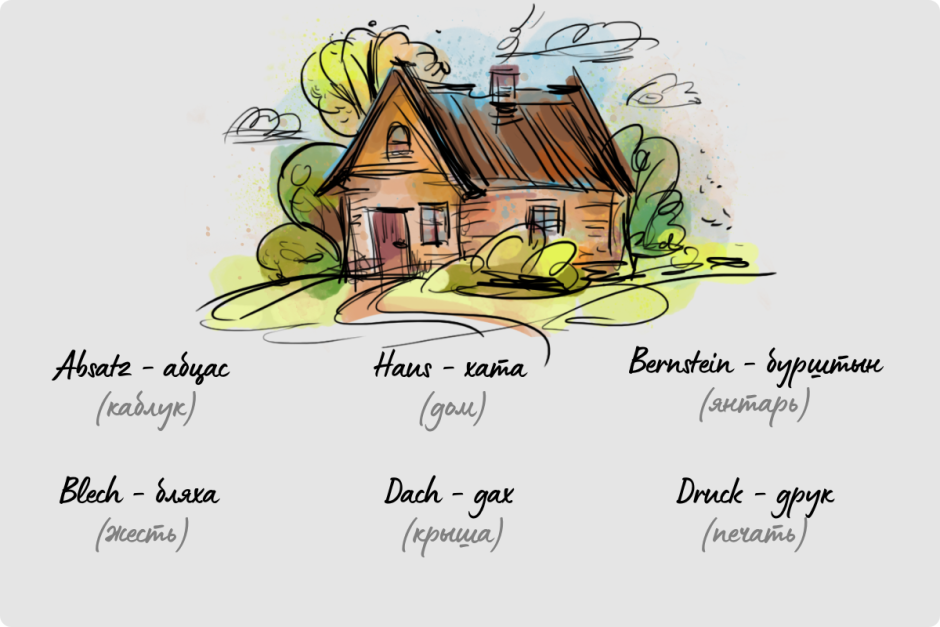 Absatz - абцас
(каблук)
Haus - хата
(дом)
Bernstein - бурштын
(янтарь)
Blech - бляха
(жесть)
Dach - дах
(крыша)
Druck - друк
(печать)